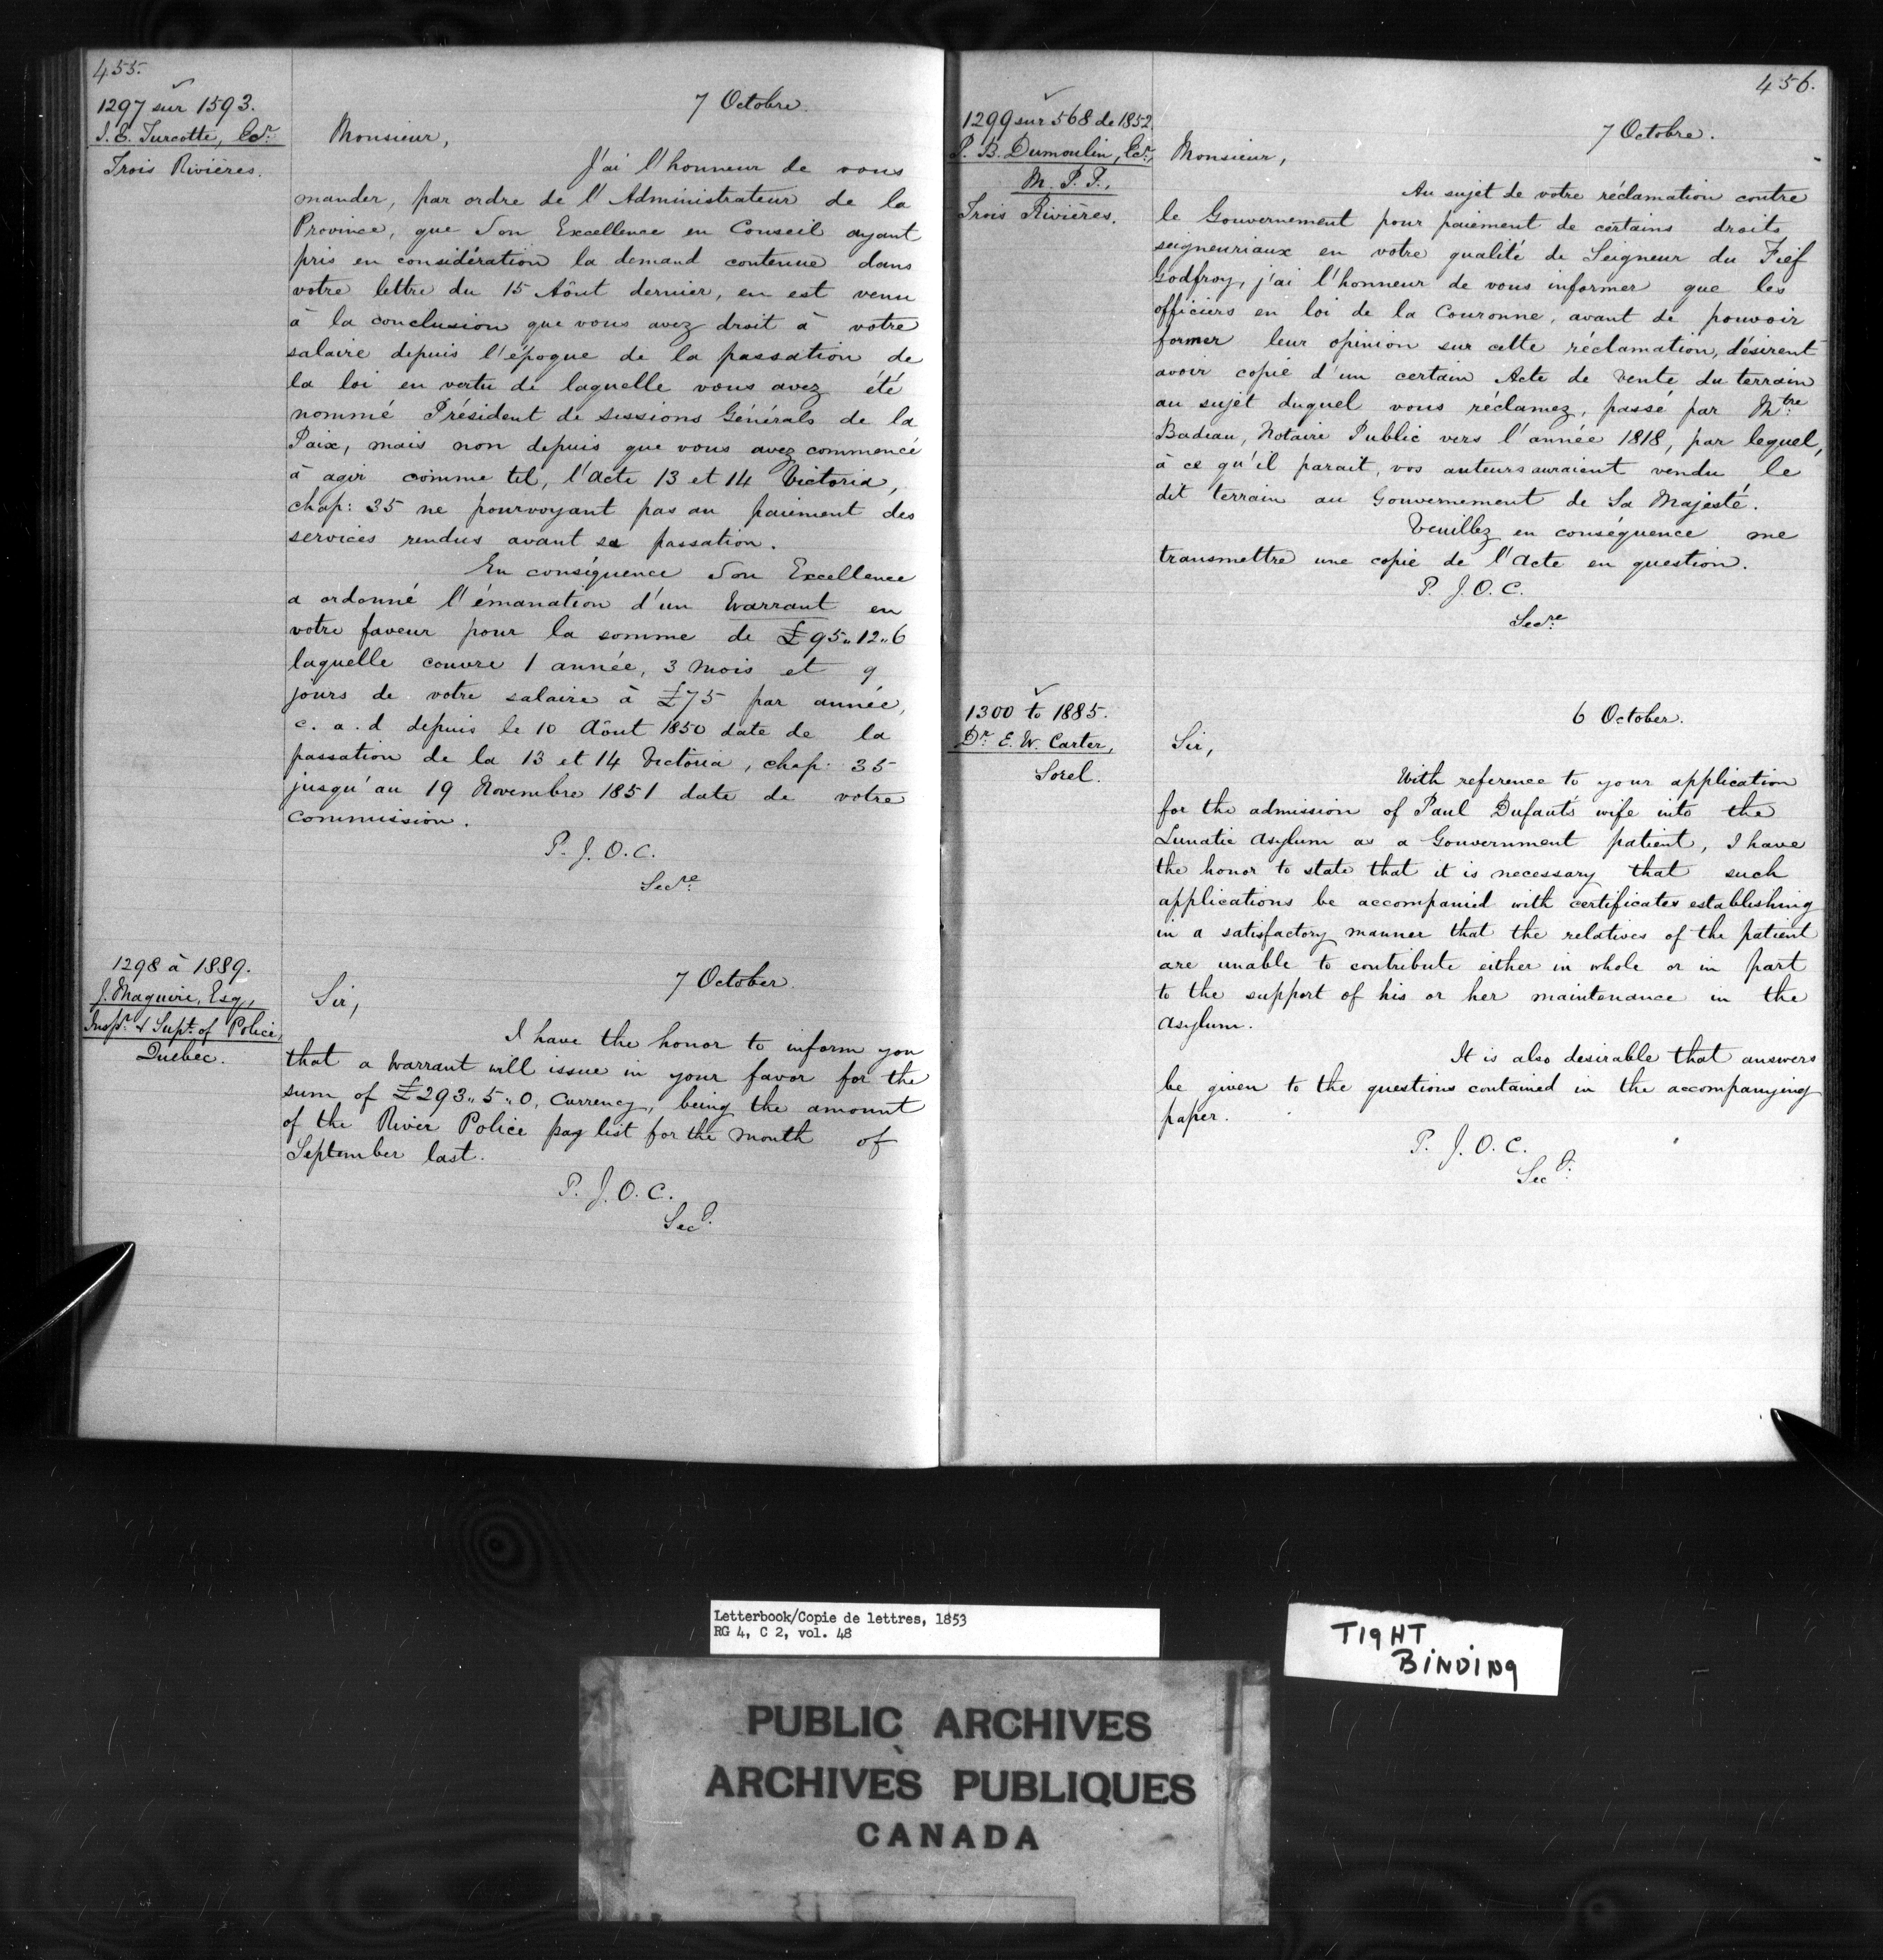 455.
1297 sur 1593.
I. E. Turcotte, Ecr.
Trois Rivières.
7 Octobre.
Monsieur,
J'ai l'honneur de vous
mander, par ordre de l'Administrateur de la
Province, que Son Excellence en Conseil ayant
pris en considération la demand contenue dans
votre lettre du 15 Aôut dernier, en est venu
à la conclusion que vous avez droit à votre
salaire depuis l'époque de la passation de
la loi en vertu de laquelle vous avez été
nommé Président de sessions Générals de la
Paix, mais non depuis que vous avez commencé
à agir comme tel, l'acte 13 et 14 Victoria,
chap: 35 ne pourvoyant pas au paiement des
services rendus avant sa passation.
En conséquence Son Excellence
a ordonné l'émanation d'un Warrant en
votre faveur pour la somme de £95"12"6
laquelle couvre 1 année, 3 mois et 9
jours de votre salaire à £75 par année,
c. a. d depuis le 10 Aôut 1850 date de la
passation de la 13 et 14 Victoria, chap: 35
jusqu'au 19 Novembre 1851 date de votre
commission.
P. J. O. C.
Secre.
1298 à 1889.
J. Maguire, Esq,
Inspr. & Supt. of Police,
Quebec.
7 October
Sir,
I have the honor to inform you
that a Warrant will issue in your favor for the
sum of £293"5"0, Currency, being the amount
of the River Police pay list for the month of
September last.
P. J. O. C.
Secy.
456.
1299 sur 568 de 1852.
P. B. Dumoulin, Ecr,
M. P. P.,
Trois Rivières.
7 Octobre.
Monsieur,
Au sujet de votre réclamation contre
le Gouvernement pour paiement de certains droits
seigneuriaux en votre qualité de Seigneur du Fief
Godfroy, j'ai l'honneur de vous informer que les
officiers en loi de la Couronne, avant de pouvoir
former leur opinion sur cette réclamation, désirent
avoir copie d'un certain Acte de vente du terrain
au sujet duquel vous réclamez, passé par Mtre.
Badeau, Notaire Public vers l'année 1818, par lequel,
à ce qu'il parait, vos auteurs auraient vendu le
dit terrain au Gouvernement de Sa Majesté.
Veuillez en conséquence me
transmettre une copie de l'acte en question.
P. J. O. C.
Secre.
1300 to 1885.
Dr. E. W. Carter,
Sorel.
6 October.
Sir,
With reference to your application
for the admission of Paul Dufault's wife into the
Lunatic Asylum as a Gouvernment patient, I have
the honor to state that it is necessary that such
applications be accompanied with certificates establishing
in a satisfactory manner that the relatives of the patient
are unable to contribute either in whole or in part
to the support of his or her maintenance in the
Asylum.
It is also desirable that answers
be given to the questions contained in the accompanying
paper.
P. J. O. C.
Secy.
Letterbook/Copie de lettres, 1853
RG 4, C 2, vol. 48
TIGHT
BINDING
PUBLIC ARCHIVES
ARCHIVES PUBLIQUES
CANADA